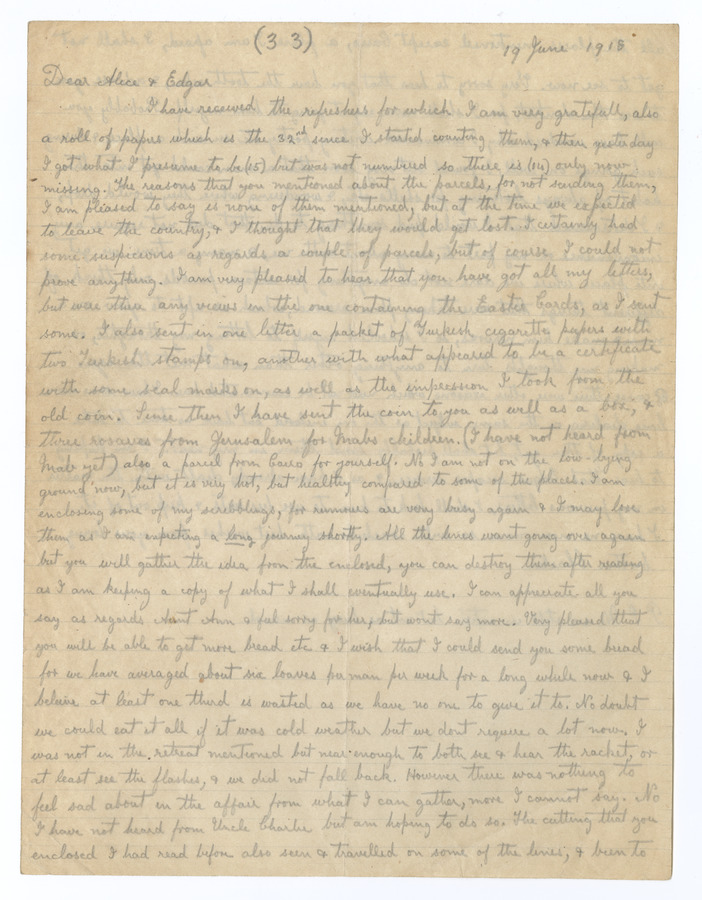 (33)
19 June 1918
Dear Alice & Edgar
I have received the refreshers for which I am very gratefull, also
a roll of papers which is the 32nd since I started counting them, & then yesterday
I got what I presume to be (15) but was not numbered so there is (14) only now
missing. The reasons that you mentioned about the parcels, for not sending them,
I am pleased to say is none of them mentioned, but at the time we expected
to leave the country, & I thought that they would get lost. I certainly had
some suspecions as regards a couple of parcels, but of course I could not
prove anything. I am very pleased to hear that you have got all my letters,
but were there any views in the one containing the Easter Cards, as I sent
some. I also sent in one letter a packet of Turkish cigarette papers with
two Turkish stamps on, another with what appeared to be a certificate
with some seal marks on, as well as the impression I took from the
old coin. Since then I have sent the coin to you as well as a box, &
three rosaries from Jerusalem for Mabs children. (I have not heard from
Mab yet) also a parcel from Cairo for yourself. No I am not on the low-lying
ground now, but it is very hot, but healthy compared to some of the places. I am
enclosing some of my scribblings, for rumours are very busy again & I may lose
them as I am expecting a long journey shortly. All the lines want going over again
but you will gather the idea from the enclosed, you can destroy them after reading
as I am keeping a copy of what I shall eventually use. I can appreciate all you
say as regards Aunt Ann & feel sorry for her, but wont say more. Very pleased that
you will be able to get more bread etc & I wish that I could send you some bread
for we have averaged about six loaves per man per week for a long while now & I
believe at least one third is wasted as we have no one to give it to. No doubt
we could eat it all if it was cold weather but we dont require a lot now. I
was not in the retreat mentioned but near enough to both see & hear the racket, or
at least see the flashes, & we did not fall back. However there was nothing to
feel sad about in the affair from what I can gather, more I cannot say. No
I have not heard from Uncle Charlie but am hoping to do so. The cutting that you
enclosed I had read before also seen & travelled on some of the lines, & been to